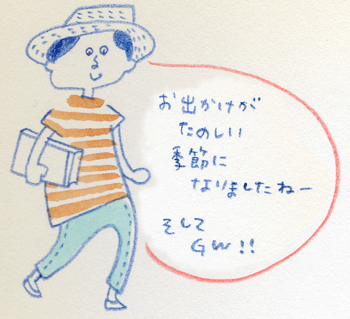 お出かけが
たのしい
季節に
なりましたねー
そして
GW!!